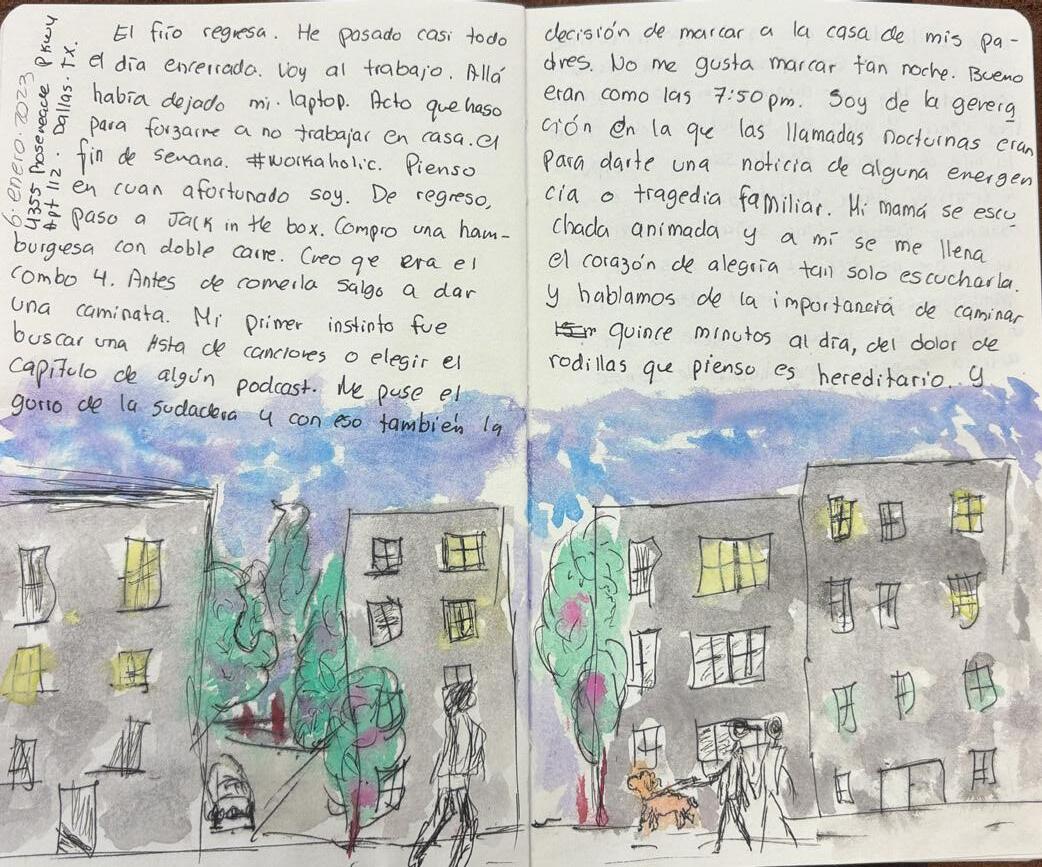 6 enero. 2023
4355 Rosemeade Pkwy
Apt 112. Dallas. TX.
El frío regresa. He pasado casi todo
el día encerrada. Voy al trabajo. Allá
había dejado mi laptop. Acto que haso
para forzarme a no trabajar en casa. el
fin de semana. #workaholic. Pienso
en cuan afortunado soy. De regreso,
paso a Jack in the box. Compro una ham-
burgesa con doble carne. Creo qe era el
combo 4. Antes de comerla salgo a dar
una caminata. Mi primer instinto fue
buscar una lista de canciones o elegir el
capítulo de algún podcast. Me puse el
gorro de la sudadera y con eso también la
decisión de marcar a la casa de mis pa-
dres. No me gusta marcar tan noche. Bueno
eran como las 7:50 pm. Soy de la genera
ción en la que las llamadas nocturnas eran
para darte una noticia de alguna emergen
cia o tragedia familiar. Mi mamá se escu
chada animada y a mí se me llena
el corazón de alegría tan solo escucharla.
y hablamos de la importancia de caminar
quince minutos al día, del dolor de
rodillas que pienso es hereditario. y